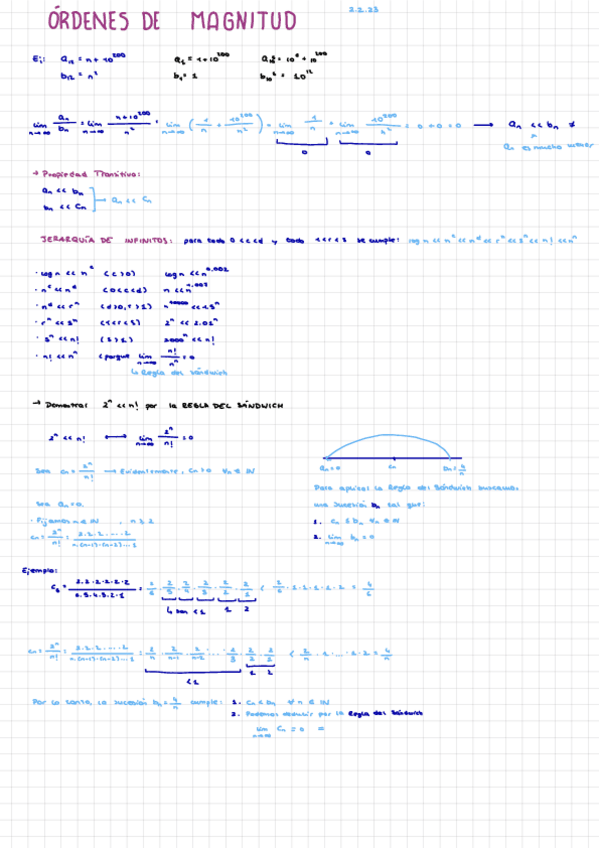 2.2.23
ÓRDENES DE MAGNITUD
Ej: aₙ = n + 10²⁰⁰
bₙ = n²
b₁ = 1
lím n→∞ aₙ/bₙ = lím n→∞ (n+10²⁰⁰)/n² = lím n→∞ (1/n + 10²⁰⁰/n²) = lím n→∞ 1/n + lím n→∞ 10²⁰⁰/n² = 0 + 0 = 0 → aₙ << bₙ
0 0
aₙ es mucho menor
→ Propiedad Transitiva:
aₙ << bₙ
bₙ << cₙ
aₙ << cₙ
JERARQUÍA DE INFINITOS: para todo 0 < c < d y todo 1 < r < s se cumple: log n << n^c << n^d << rⁿ << sⁿ << n! << nⁿ
· log n << n^c (c > 0) log n << n^0.002
· n^c << n^d (0 < c < d)
· n^d << rⁿ (d > 0, r > 1)
· rⁿ << sⁿ (1 < r < s) 2ⁿ << 2.01ⁿ
· sⁿ << n! (s > 1) 2000ⁿ << n!
· n! << nⁿ (porque lím n→∞ n!/nⁿ = 0
↳ Regla del Sándwich
→ Demostrar 2ⁿ << n! por la REGLA DEL SÁNDWICH
2ⁿ << n! ⟷ lím n→∞ 2ⁿ/n! = 0
aₙ = 0 cₙ bₙ = 4/n
Sea cₙ = 2ⁿ/n! → Evidentemente, cₙ > 0 ∀n ∈ ℕ
Para aplicar la Regla del Sándwich buscamos
una sucesión bₙ tal que:
Sea aₙ = 0
1. cₙ ≤ bₙ ∀n ∈ ℕ
· Fijamos n ∈ ℕ, n ≥ 2
2. lím n→∞ bₙ = 0
cₙ = 2ⁿ/n! = 2·2·2·...·2 / n·(n-1)·(n-2)...1
Ejemplo:
c₆ = 2·2·2·2·2·2 / 6·5·4·3·2·1 = 2/6 · 2/5 · 2/4 · 2/3 · 2/2 · 2/1 < 2/6 · 1·1·1·1·2 = 4/6
↳ son < 1 1 2
cₙ = 2ⁿ/n! = 2·2·2·...·2 / n·(n-1)·(n-2)...1 = 2/n · 2/n-1 · 2/n-2 · ... · 2/3 · 2/2 · 2/1 < 2/n · 1·...·1·2 = 4/n
< 1 1 2
Por lo tanto, la sucesión bₙ = 4/n cumple: 1. cₙ < bₙ ∀n ∈ ℕ
2. Podemos deducir por la Regla del Sándwich
lím n→∞ cₙ = 0 =